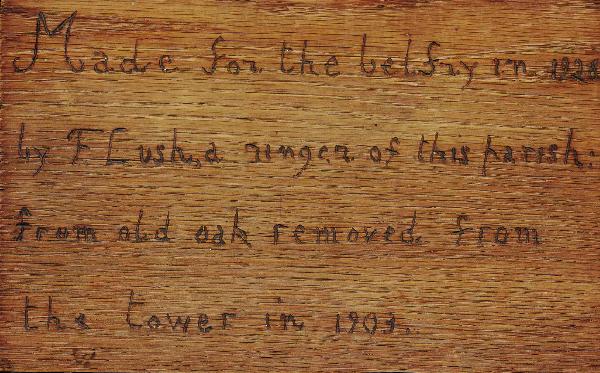 Made for the belfry in 1928
by F Lush, a ringer of this parish:
from old oak removed from
the tower in 1903.